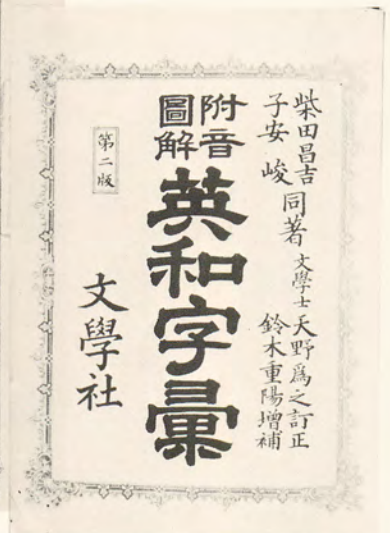 柴田昌吉
子安峻 同著
文學士 天野爲之訂正
鈴木重陽增補
附音
圖解
英和字彙
第二版
文學社